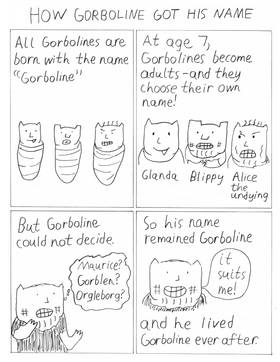 HOW GORBOLINE GOT HIS NAME
All Gorbolines are
born with the name
"Gorboline"
At age 7,
Gorbolines become
adults-and they
choose their own
name!
Glanda
Blippy
Alice
the
undying
But Gorboline
could not decide.
Maurice?
Gorblen?
Orgleborg?
So his name
remained Gorboline
it
suits
me!
and he lived
Gorboline ever after.